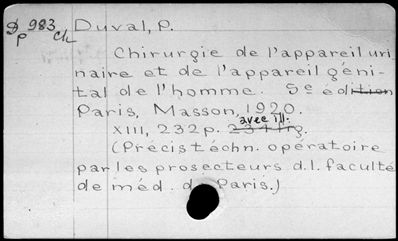 D 983 Duval, P.
p ch
Chirurgie de l'appareil uri
naire et de l'appareil géni-
tal de l'homme. 5e édition
Paris, Masson, 1920.
avec ill.
XIII, 232 p. 234 fig.
(Précis téchn. opératoire
par les prosecteurs d.l. faculté
de méd. de Paris.)